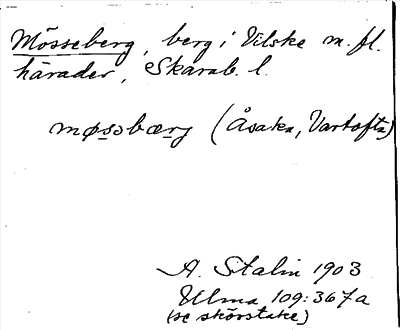 Mösseberg, berg i Vilske m. fl.
härader, Skarab. l.
møsəbærj (Åsaka, Vartofta)
A. Stalin 1903
Ulma 109:367a
(se skörstake)